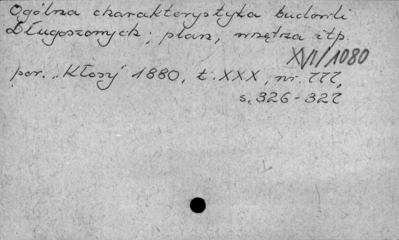 Ogólna charakterystyka budowli
Długoszowych; plan, wnętrza itp.
XVI/1080
por. „Kłosy" 1880, t. XXX, nr. 777,
s. 326-327